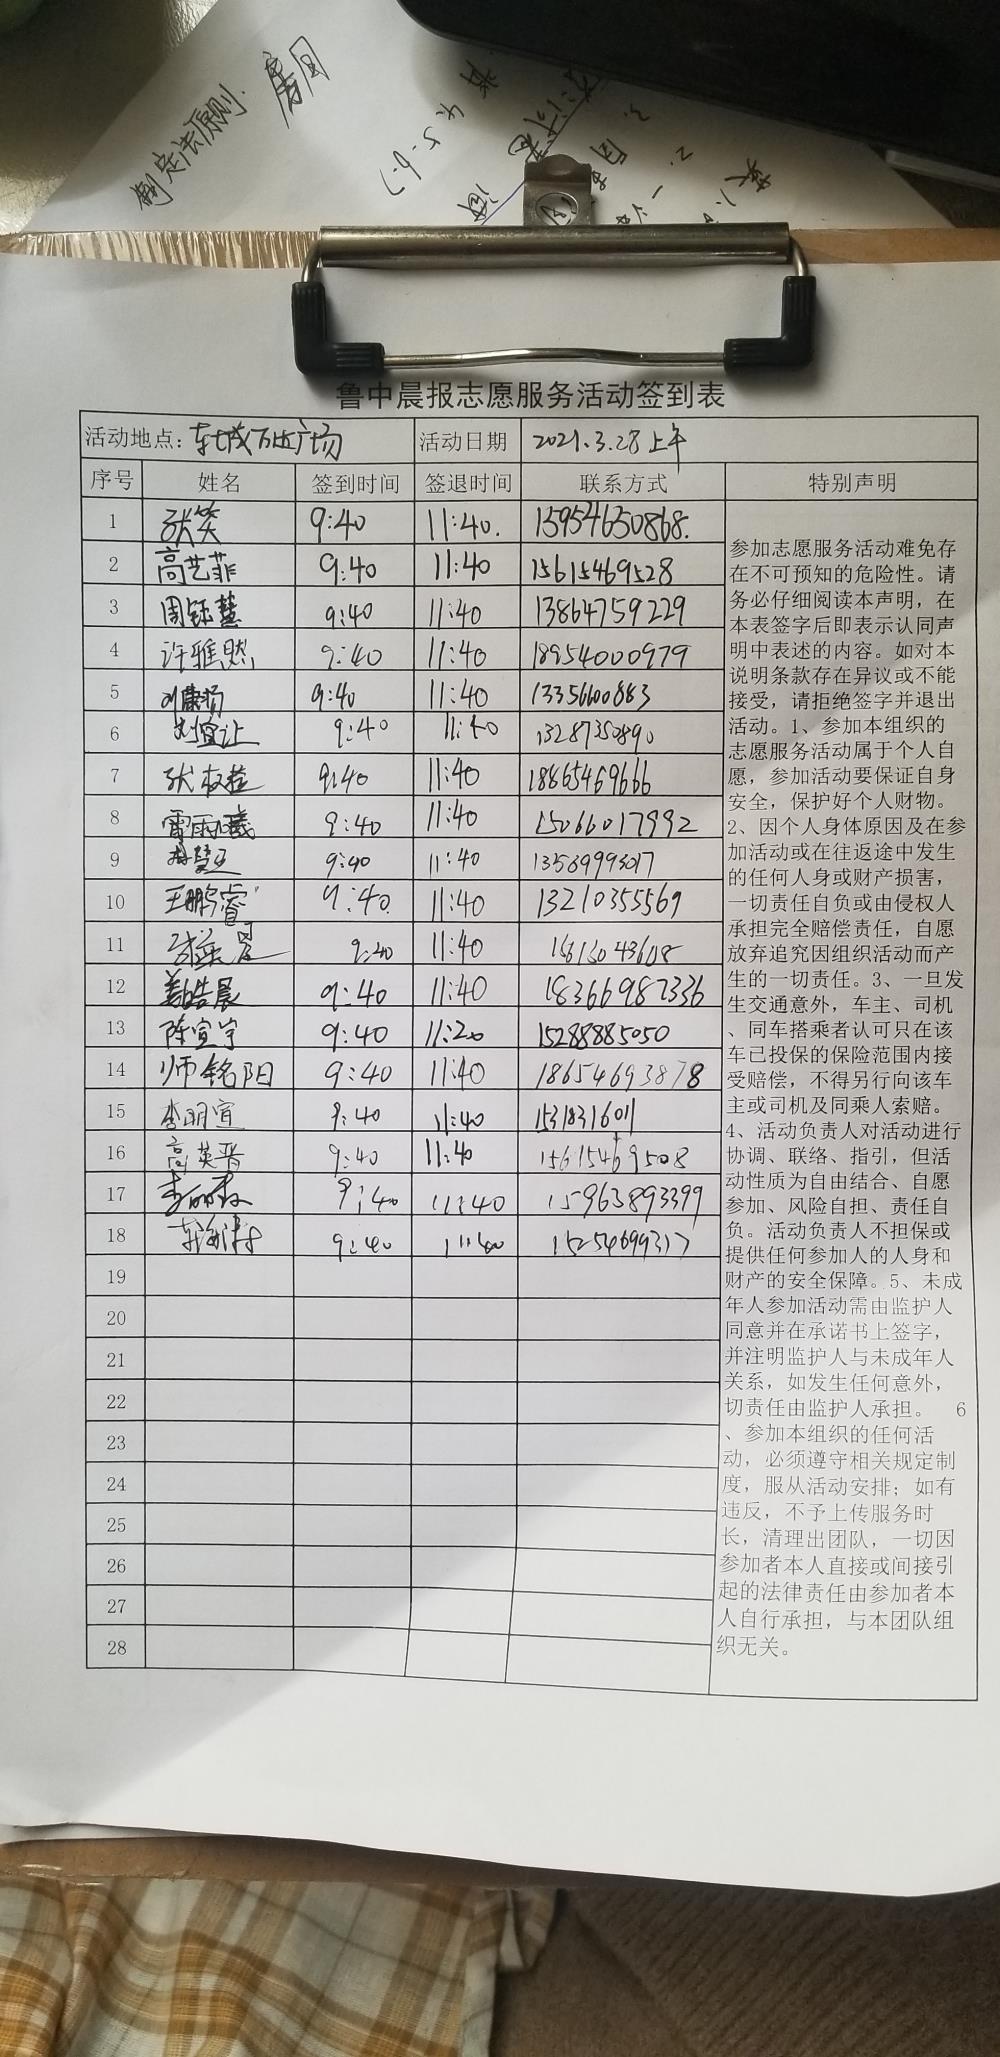 制定法原则
鲁中晨报志愿服务活动签到表
活动地点: 东城万达广场 活动日期 2021.3.28上午
序号 姓名 签到时间 签退时间 联系方式 特别声明
1 张笑 9:40 11:40. 15954650868.
2 高艺菲 9:40 11:40 15615469528
3 周钰慧 9:40 11:40 13864759229
4 许雅然 9:40 11:40 18954000979
5 刘康扬 9:40 11:40 13356600883
6 刘宣让 9:40 11:40 13287350890
7 张 9:40 11:40 18865469666
8 雷雨曦 9:40 11:40 15066017992
9 9:40 11:40 13589993017
10 王鹏睿 9:40 11:40 13210355569
11 9:40 11:40
12 姜皓晨 9:40 11:40 18366987336
13 陈宣宇 9:40 11:20 15288885050
14 师铭阳 9:40 11:40 18654693878
15 李明宣 9:40 11:40 15318316011
16 高英晋 9:40 11:40 15615469508
17 9:40 11:40 15963893399
18 9:40 11:40 15254699317
19
20
21
22
23
24
25
26
27
28
参加志愿服务活动难免存
在不可预知的危险性。请
务必仔细阅读本声明，在
本表签字后即表示认同声
明中表述的内容。如对本
说明条款存在异议或不能
接受，请拒绝签字并退出
活动。1、参加本组织的
志愿服务活动属于个人自
愿，参加活动要保证自身
安全，保护好个人财物。
2、因个人身体原因及在参
加活动或在往返途中发生
的任何人身或财产损害，
一切责任自负或由侵权人
承担完全赔偿责任，自愿
放弃追究因组织活动而产
生的一切责任。3、一旦发
生交通意外，车主、司机
、同车搭乘者认可只在该
车已投保的保险范围内接
受赔偿，不得另行向该车
主或司机及同乘人索赔。
4、活动负责人对活动进行
协调、联络、指引，但活
动性质为自由结合、自愿
参加、风险自担、责任自
负。活动负责人不担保或
提供任何参加人的人身和
财产的安全保障。5、未成
年人参加活动需由监护人
同意并在承诺书上签字，
并注明监护人与未成年人
关系，如发生任何意外，
切责任由监护人承担。 6
、参加本组织的任何活
动，必须遵守相关规定制
度，服从活动安排；如有
违反，不予上传服务时
长，清理出团队，一切因
参加者本人直接或间接引
起的法律责任由参加者本
人自行承担，与本团队组
织无关。